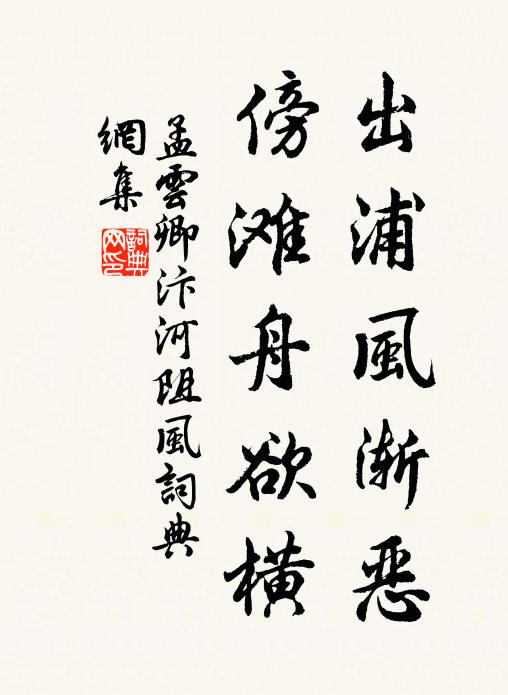 出浦風漸恶
傍滩舟欲橫
孟雲卿汴河阻風詞典
網集
詞典網印